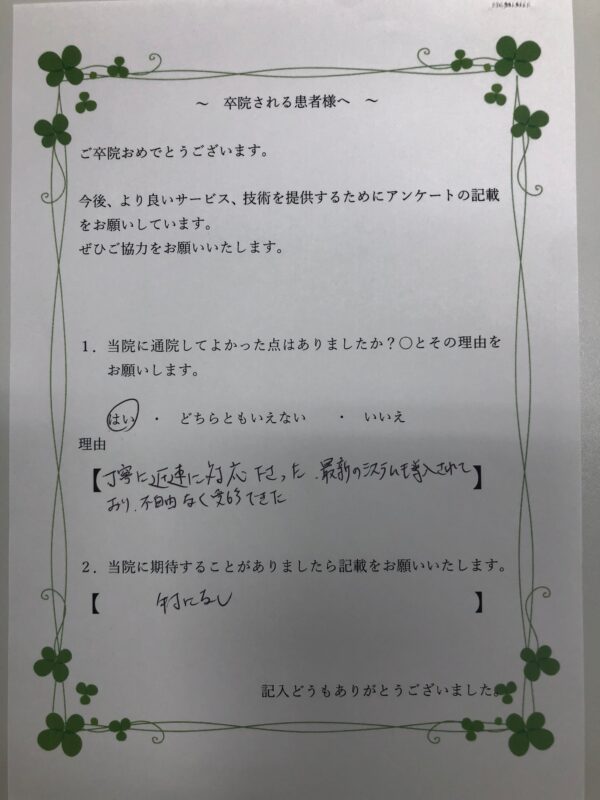 ～ 卒院される患者様へ ～
ご卒院おめでとうございます。
今後、より良いサービス、技術を提供するためにアンケートの記載
をお願いしています。
ぜひご協力をお願いいたします。
１．当院に通院してよかった点はありましたか？○とその理由を
お願いします。
はい ・ どちらともいえない ・ いいえ
理由
【丁寧に迅速に対応下さった．最新のシステムも導入されて】
おり、不自由なく受診できた
２．当院に期待することがありましたら記載をお願いいたします。
【 特になし 】
記入どうもありがとうございました。